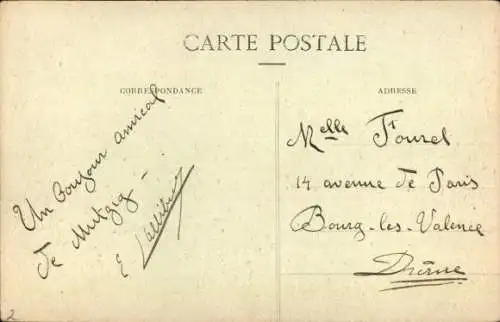 CARTE POSTALE
CORRESPONDANCE
ADRESSE
Un bonjour amical
de Mutzig -
Melle Fourel
14 avenue de Paris
Bourg-les-Valence
Drôme
2